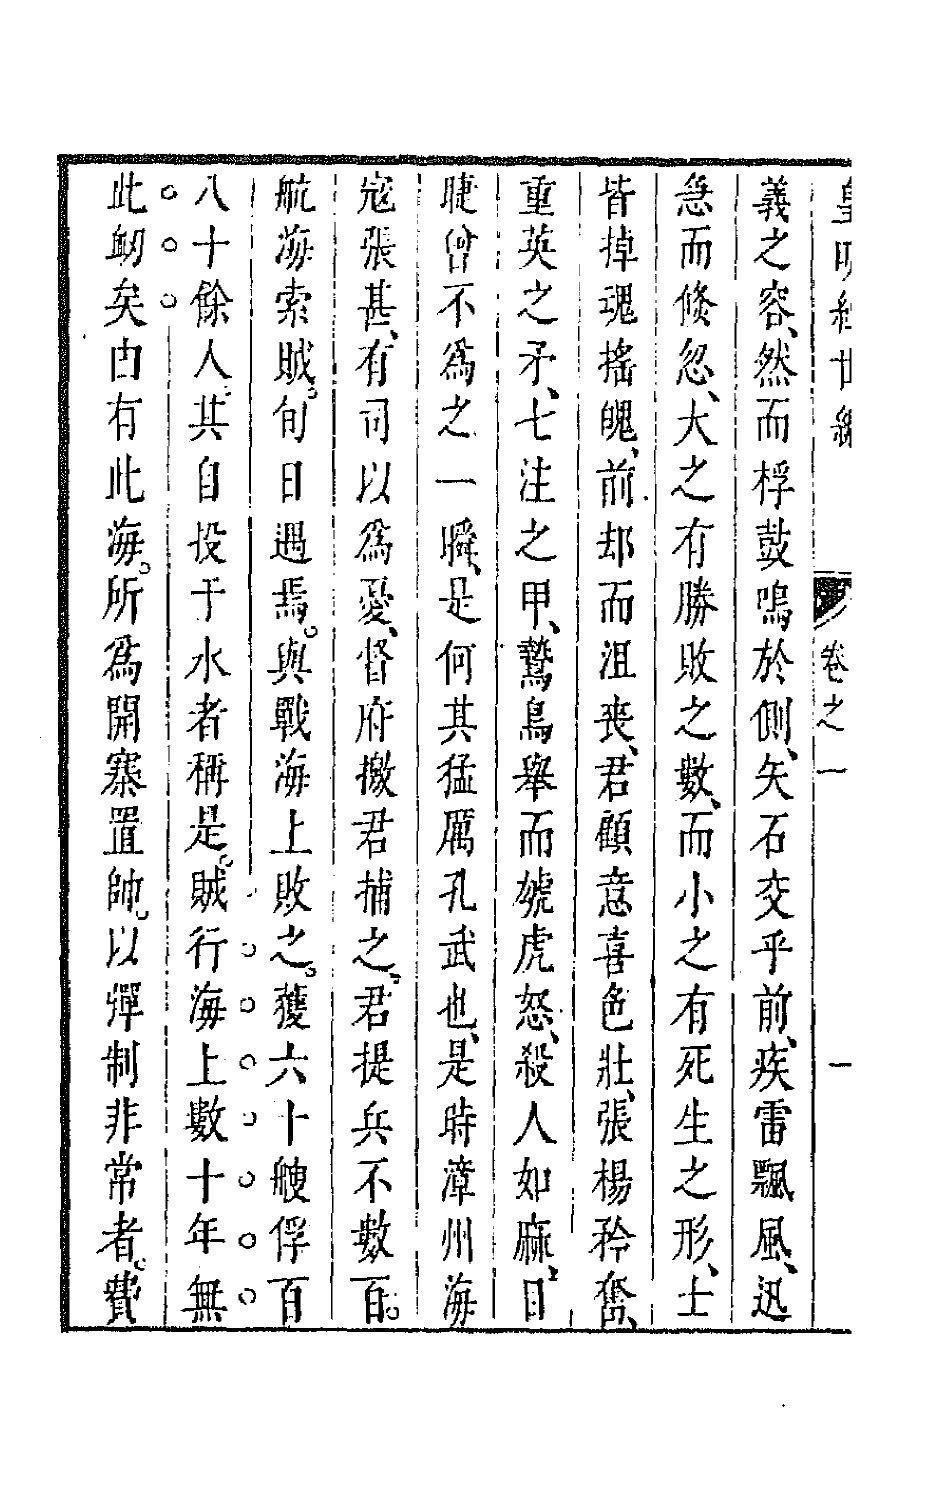 皇明經世編 卷之一 一
義之容、然而桴鼓鳴於側、矢石交乎前、疾雷飄風、迅
急而倏忽、大之有勝敗之數、而小之有死生之形、士
皆掉魂搖魄、前却而沮喪、君顧意喜色壯、張楊矜奮、
重英之矛、七注之甲、鷙鳥舉而虓虎怒、殺人如麻、目
睫曾不爲之一瞬、是何其猛厲孔武也、是時漳州海
寇張甚、有司以爲憂、督府檄君捕之。君提兵不數百。
航海索賊。旬日遇焉。與戰海上敗之。獲六十艘俘百
八十餘人。其自投于水者稱是。賊行海上數十年無
此衂矣由有此海。所爲開寨置帥。以彈制非常者。費